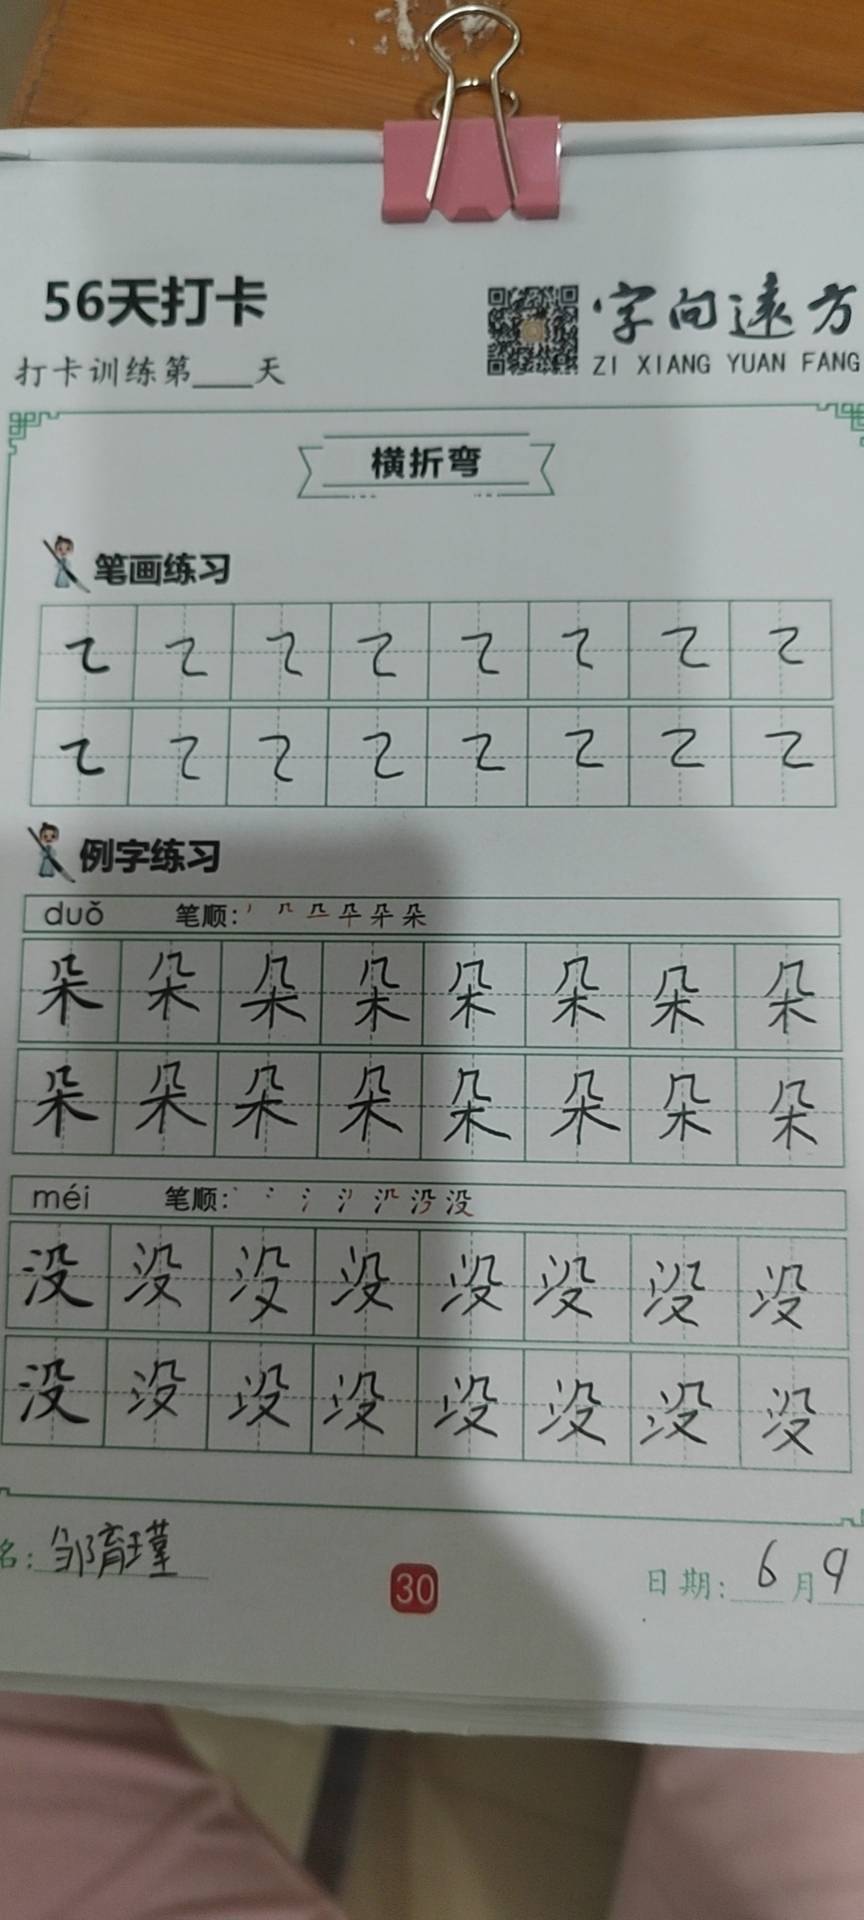 56天打卡
字向遠方
打卡训练第____天
ZI XIANG YUAN FANG
横折弯
笔画练习
㇍ ㇍ ㇍ ㇍ ㇍ ㇍ ㇍ ㇍
㇍ ㇍ ㇍ ㇍ ㇍ ㇍ ㇍ ㇍
例字练习
duǒ 笔顺: 朵
朵 朵 朵 朵 朵 朵 朵 朵
朵 朵 朵 朵 朵 朵 朵 朵
méi 笔顺: 没
没 没 没 没 没 没 没 没
没 没 没 没 没 没 没 没
名: 邹育瑾
30
日期: 6月9